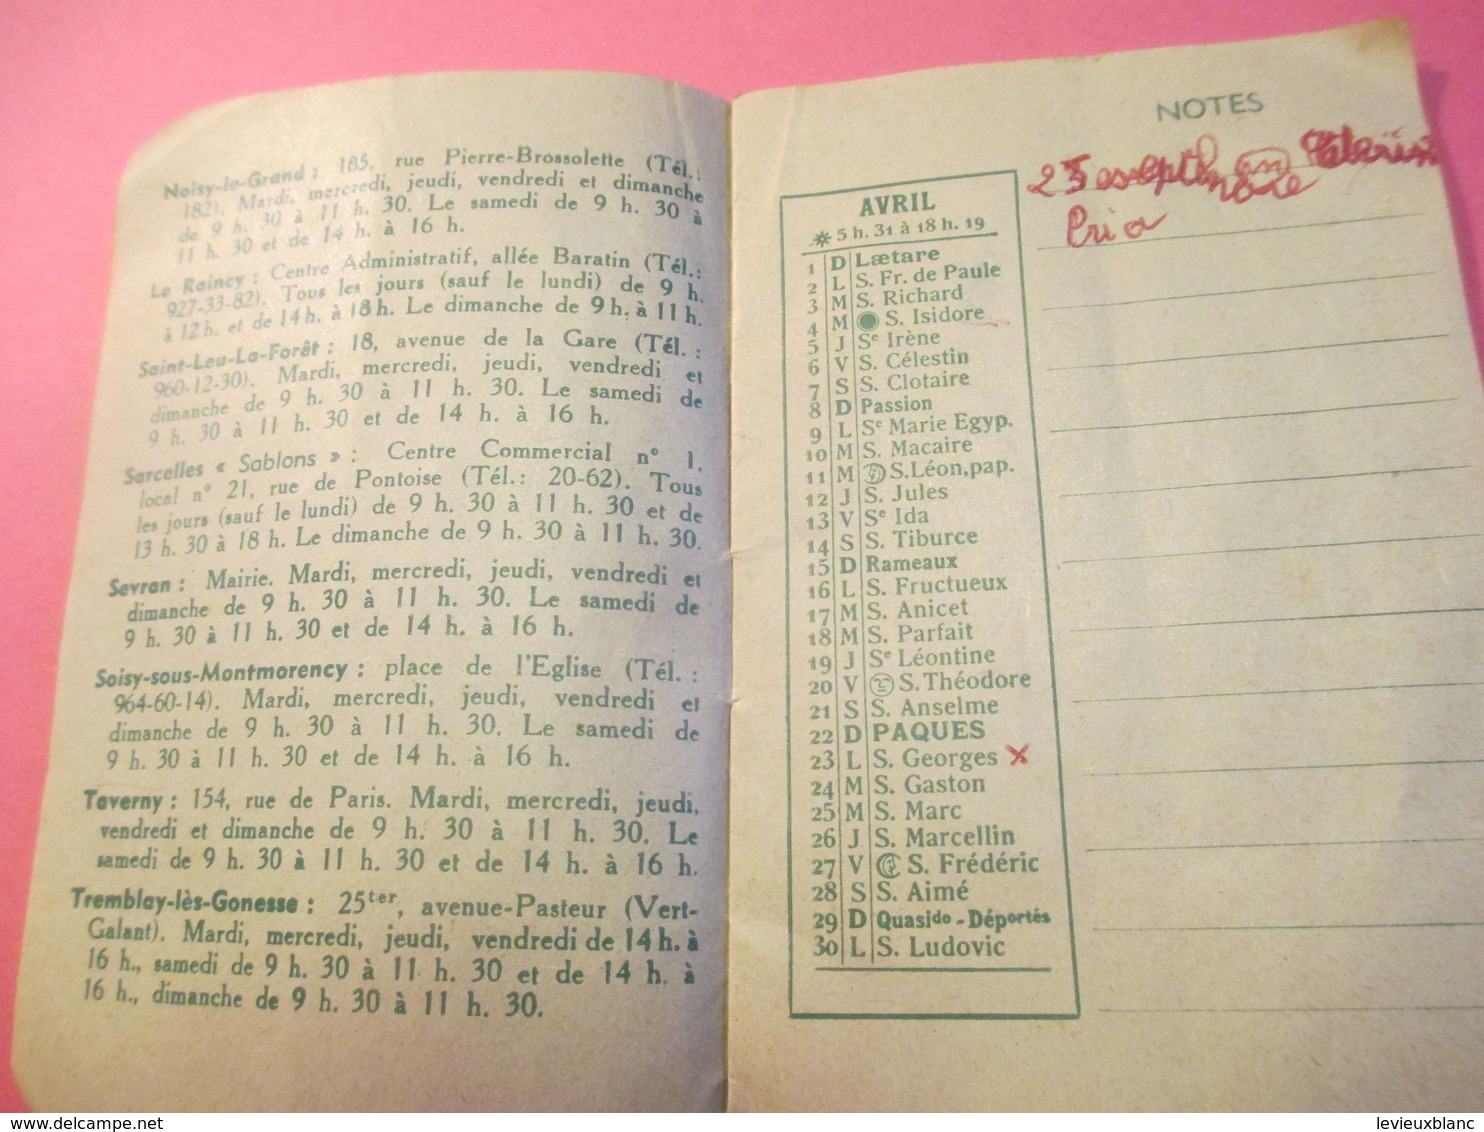 Noisy-le-Grand : 185, rue Pierre-Brossolette (Tél.:
182). Mardi, mercredi, jeudi, vendredi et dimanche
de 9 h. 30 à 11 h. 30. Le samedi de 9 h. 30 à
11 h. 30 et de 14 h. à 16 h.
Le Raincy : Centre Administratif, allée Baratin (Tél.:
927-33-82). Tous les jours (sauf le lundi) de 9 h.
à 12 h. et de 14 h. à 18 h. Le dimanche de 9 h. à 11 h.
Saint-Leu-La-Forêt : 18, avenue de la Gare (Tél. :
960-12-30). Mardi, mercredi, jeudi, vendredi et
dimanche de 9 h. 30 à 11 h. 30. Le samedi de
9 h. 30 à 11 h. 30 et de 14 h. à 16 h.
Sarcelles « Sablons » : Centre Commercial n° 1,
local n° 21, rue de Pontoise (Tél.: 20-62). Tous
les jours (sauf le lundi) de 9 h. 30 à 11 h. 30 et de
13 h. 30 à 18 h. Le dimanche de 9 h. 30 à 11 h. 30.
Sevran : Mairie. Mardi, mercredi, jeudi, vendredi et
dimanche de 9 h. 30 à 11 h. 30. Le samedi de
9 h. 30 à 11 h. 30 et de 14 h. à 16 h.
Soisy-sous-Montmorency : place de l'Eglise (Tél. :
964-60-14). Mardi, mercredi, jeudi, vendredi et
dimanche de 9 h. 30 à 11 h. 30. Le samedi de
9 h. 30 à 11 h. 30 et de 14 h. à 16 h.
Taverny : 154, rue de Paris. Mardi, mercredi, jeudi,
vendredi et dimanche de 9 h. 30 à 11 h. 30. Le
samedi de 9 h. 30 à 11 h. 30 et de 14 h. à 16 h.
Tremblay-lès-Gonesse : 25ter, avenue-Pasteur (Vert-
Galant). Mardi, mercredi, jeudi, vendredi de 14 h. à
16 h., samedi de 9 h. 30 à 11 h. 30 et de 14 h. à
16 h., dimanche de 9 h. 30 à 11 h. 30.
NOTES
AVRIL
5 h. 31 à 18 h. 19
1 D Lætare
2 L S. Fr. de Paule
3 M S. Richard
4 M S. Isidore
5 J Se Irène
6 V S. Célestin
7 S S. Clotaire
8 D Passion
9 L Se Marie Egyp.
10 M S. Macaire
11 M S. Léon, pap.
12 J S. Jules
13 V Se Ida
14 S S. Tiburce
15 D Rameaux
16 L S. Fructueux
17 M S. Anicet
18 M S. Parfait
19 J Se Léontine
20 V S. Théodore
21 S S. Anselme
22 D PAQUES
23 L S. Georges X
24 M S. Gaston
25 M S. Marc
26 J S. Marcellin
27 V S. Frédéric
28 S S. Aimé
29 D Quasido - Déportés
30 L S. Ludovic
www.delcampe.net
levieuxblanc